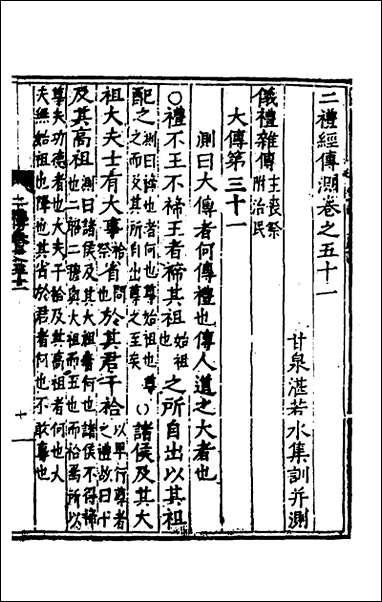 二禮經傳測卷之五十一
甘泉湛若水集訓并測
儀禮雜傳主喪祭附治民
大傳第三十一
測曰大傳者何傳禮也傳人道之大者也
○禮不王不禘王者禘其祖始祖也之所自出以其祖
配之測曰禘也者何也尊始祖也尊之而又其所自出尊之至矣○諸侯及其大
祖大夫士有大事祫祭省問也於其君干祫以卑行尊者之禮故曰干
及其高祖測曰諸侯及其大祖者何也諸侯不得禘也二昭二穆與大祖而五也而祫焉所以
尊夫功德者也大夫干祫及其高祖者何也大
夫無始祖也降也其省於君者何也不敢專也